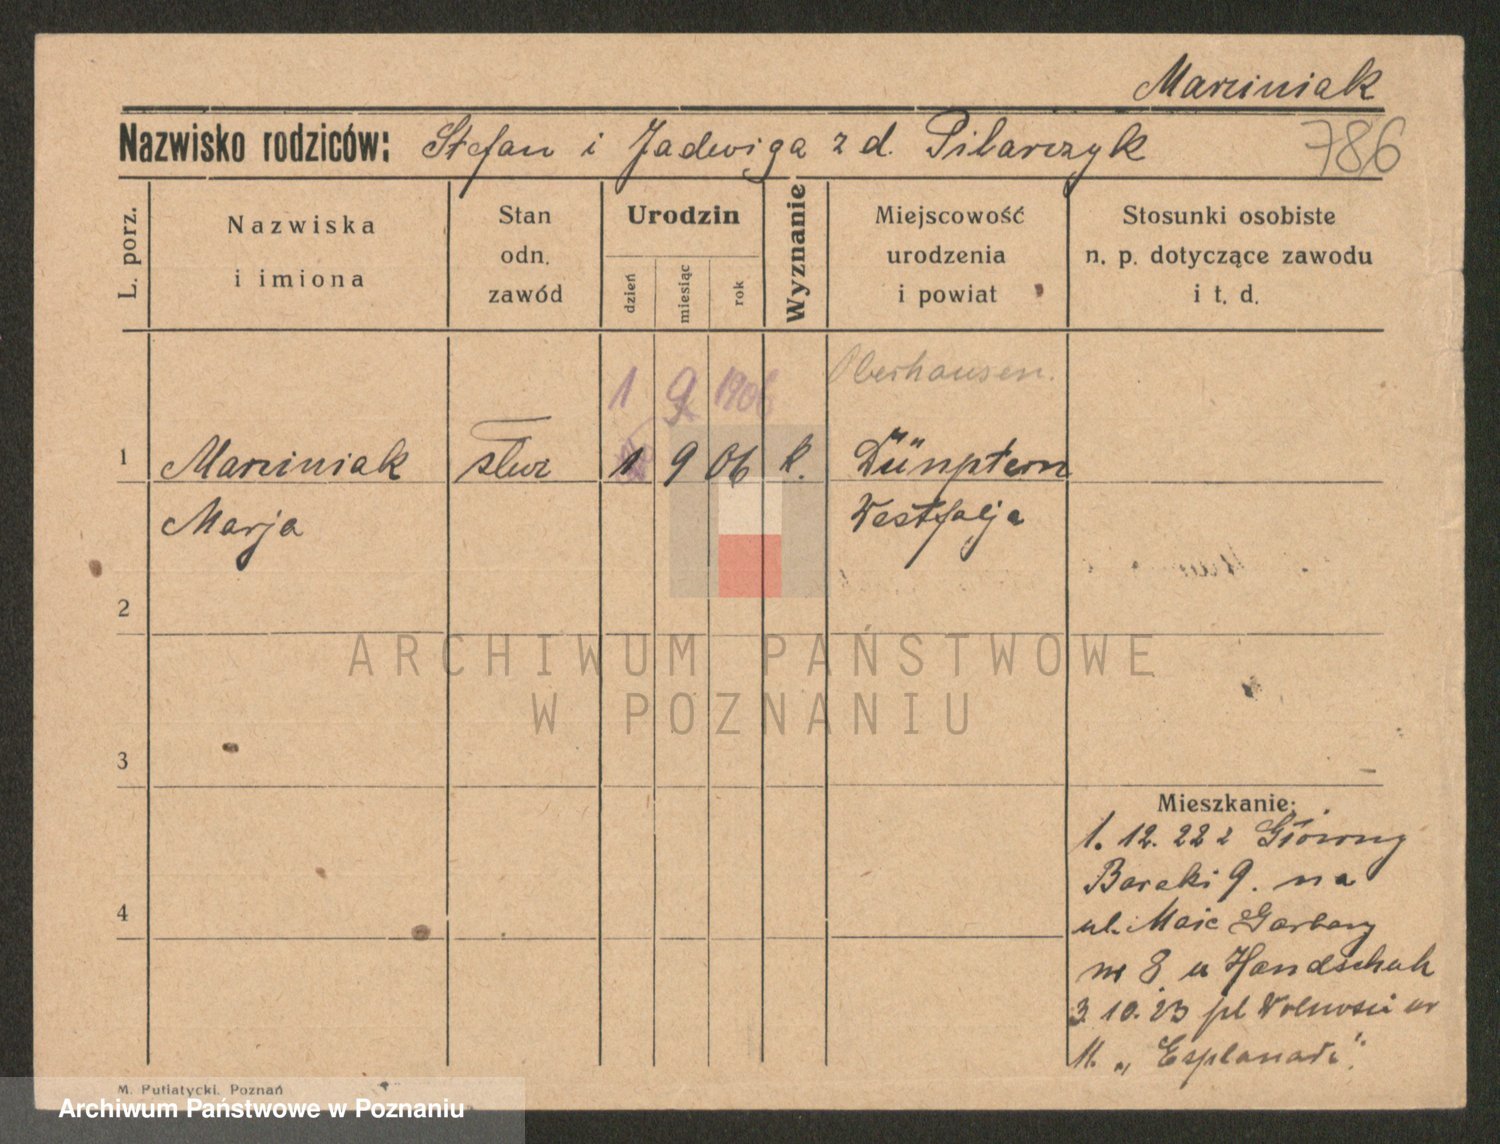 Marciniak
Nazwisko rodziców: Stefan i Jadwiga z d. Pilarczyk 786
L. porz.
Nazwiska
i imiona
Stan
odn.
zawód
Urodzin
dzień
miesiąc
rok
Wyznanie
Miejscowość
urodzenia
i powiat
Stosunki osobiste
n. p. dotyczące zawodu
i t. d.
Oberhausen.
1 9 1906
1 Marciniak służ 1 9 06 k. Dümptern
Marja Westfalja
2
ARCHIWUM PAŃSTWOWE
W POZNANIU
3
Mieszkanie:
1. 12. 22 z Główny
4 Baraki 9. na
ul. Małe Garbary
nr 8 u Handschuh
3. 10. 23 pl Wolności nr
11. „Esplanade".
M. Putiatycki, Poznań
Archiwum Państwowe w Poznaniu